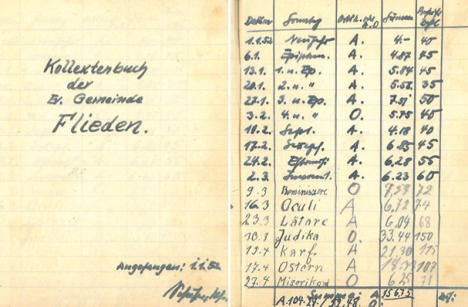 Kollektenbuch
der
Ev. Gemeinde
Flieden.
Angefangen: 1.1.52
Datum Sonntag
1.1.52 Neujahr A. 4.- 40
6.1. Epiphan. A. 4.87 45
13.1. 1. n. Ep. A. 5.84 45
20.1. 2. n. " A. 5.55 35
27.1. 3. n. Ep. A. 7.51 50
3.2. 4. n. " O. 5.75 40
10.2. Sept. A. 4.18 40
17.2. A. 6.85 45
24.2. Estomihi A. 6.28 55
2.3. Invocavit. A. 6.23 60
9.3 Reminiszere O 7,59 72
16.3 Oculi A 6,72 74
23.3 Lätare A 6.04 68
Judika O. 33,44 150
Karf. A 21,30
17.4 Ostern A 107
27.4 Miserikord O 71
Summe: A.